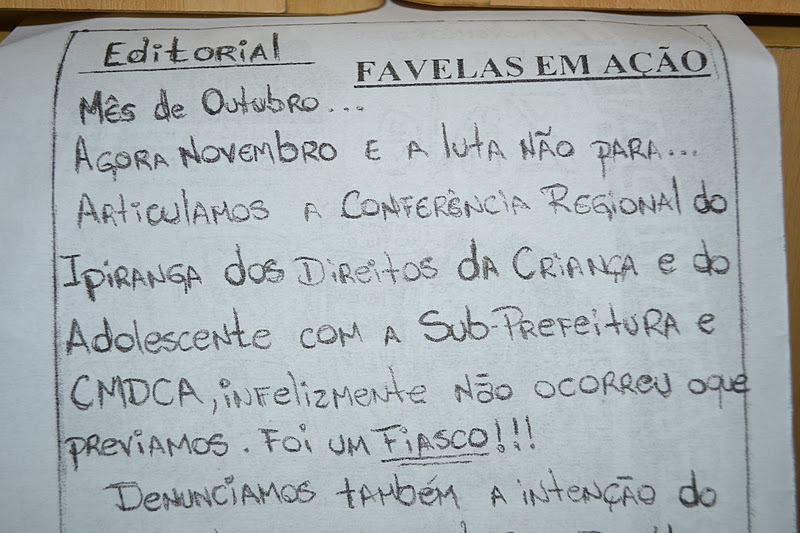 Editorial
FAVELAS EM AÇÃO
Mês de Outubro...
Agora Novembro e a luta não para...
Articulamos a Conferência Regional do
Ipiranga dos Direitos da Criança e do
Adolescente com a Sub-Prefeitura e
CMDCA, infelizmente não ocorreu oque
previamos. Foi um Fiasco!!!
Denunciamos também a intenção do